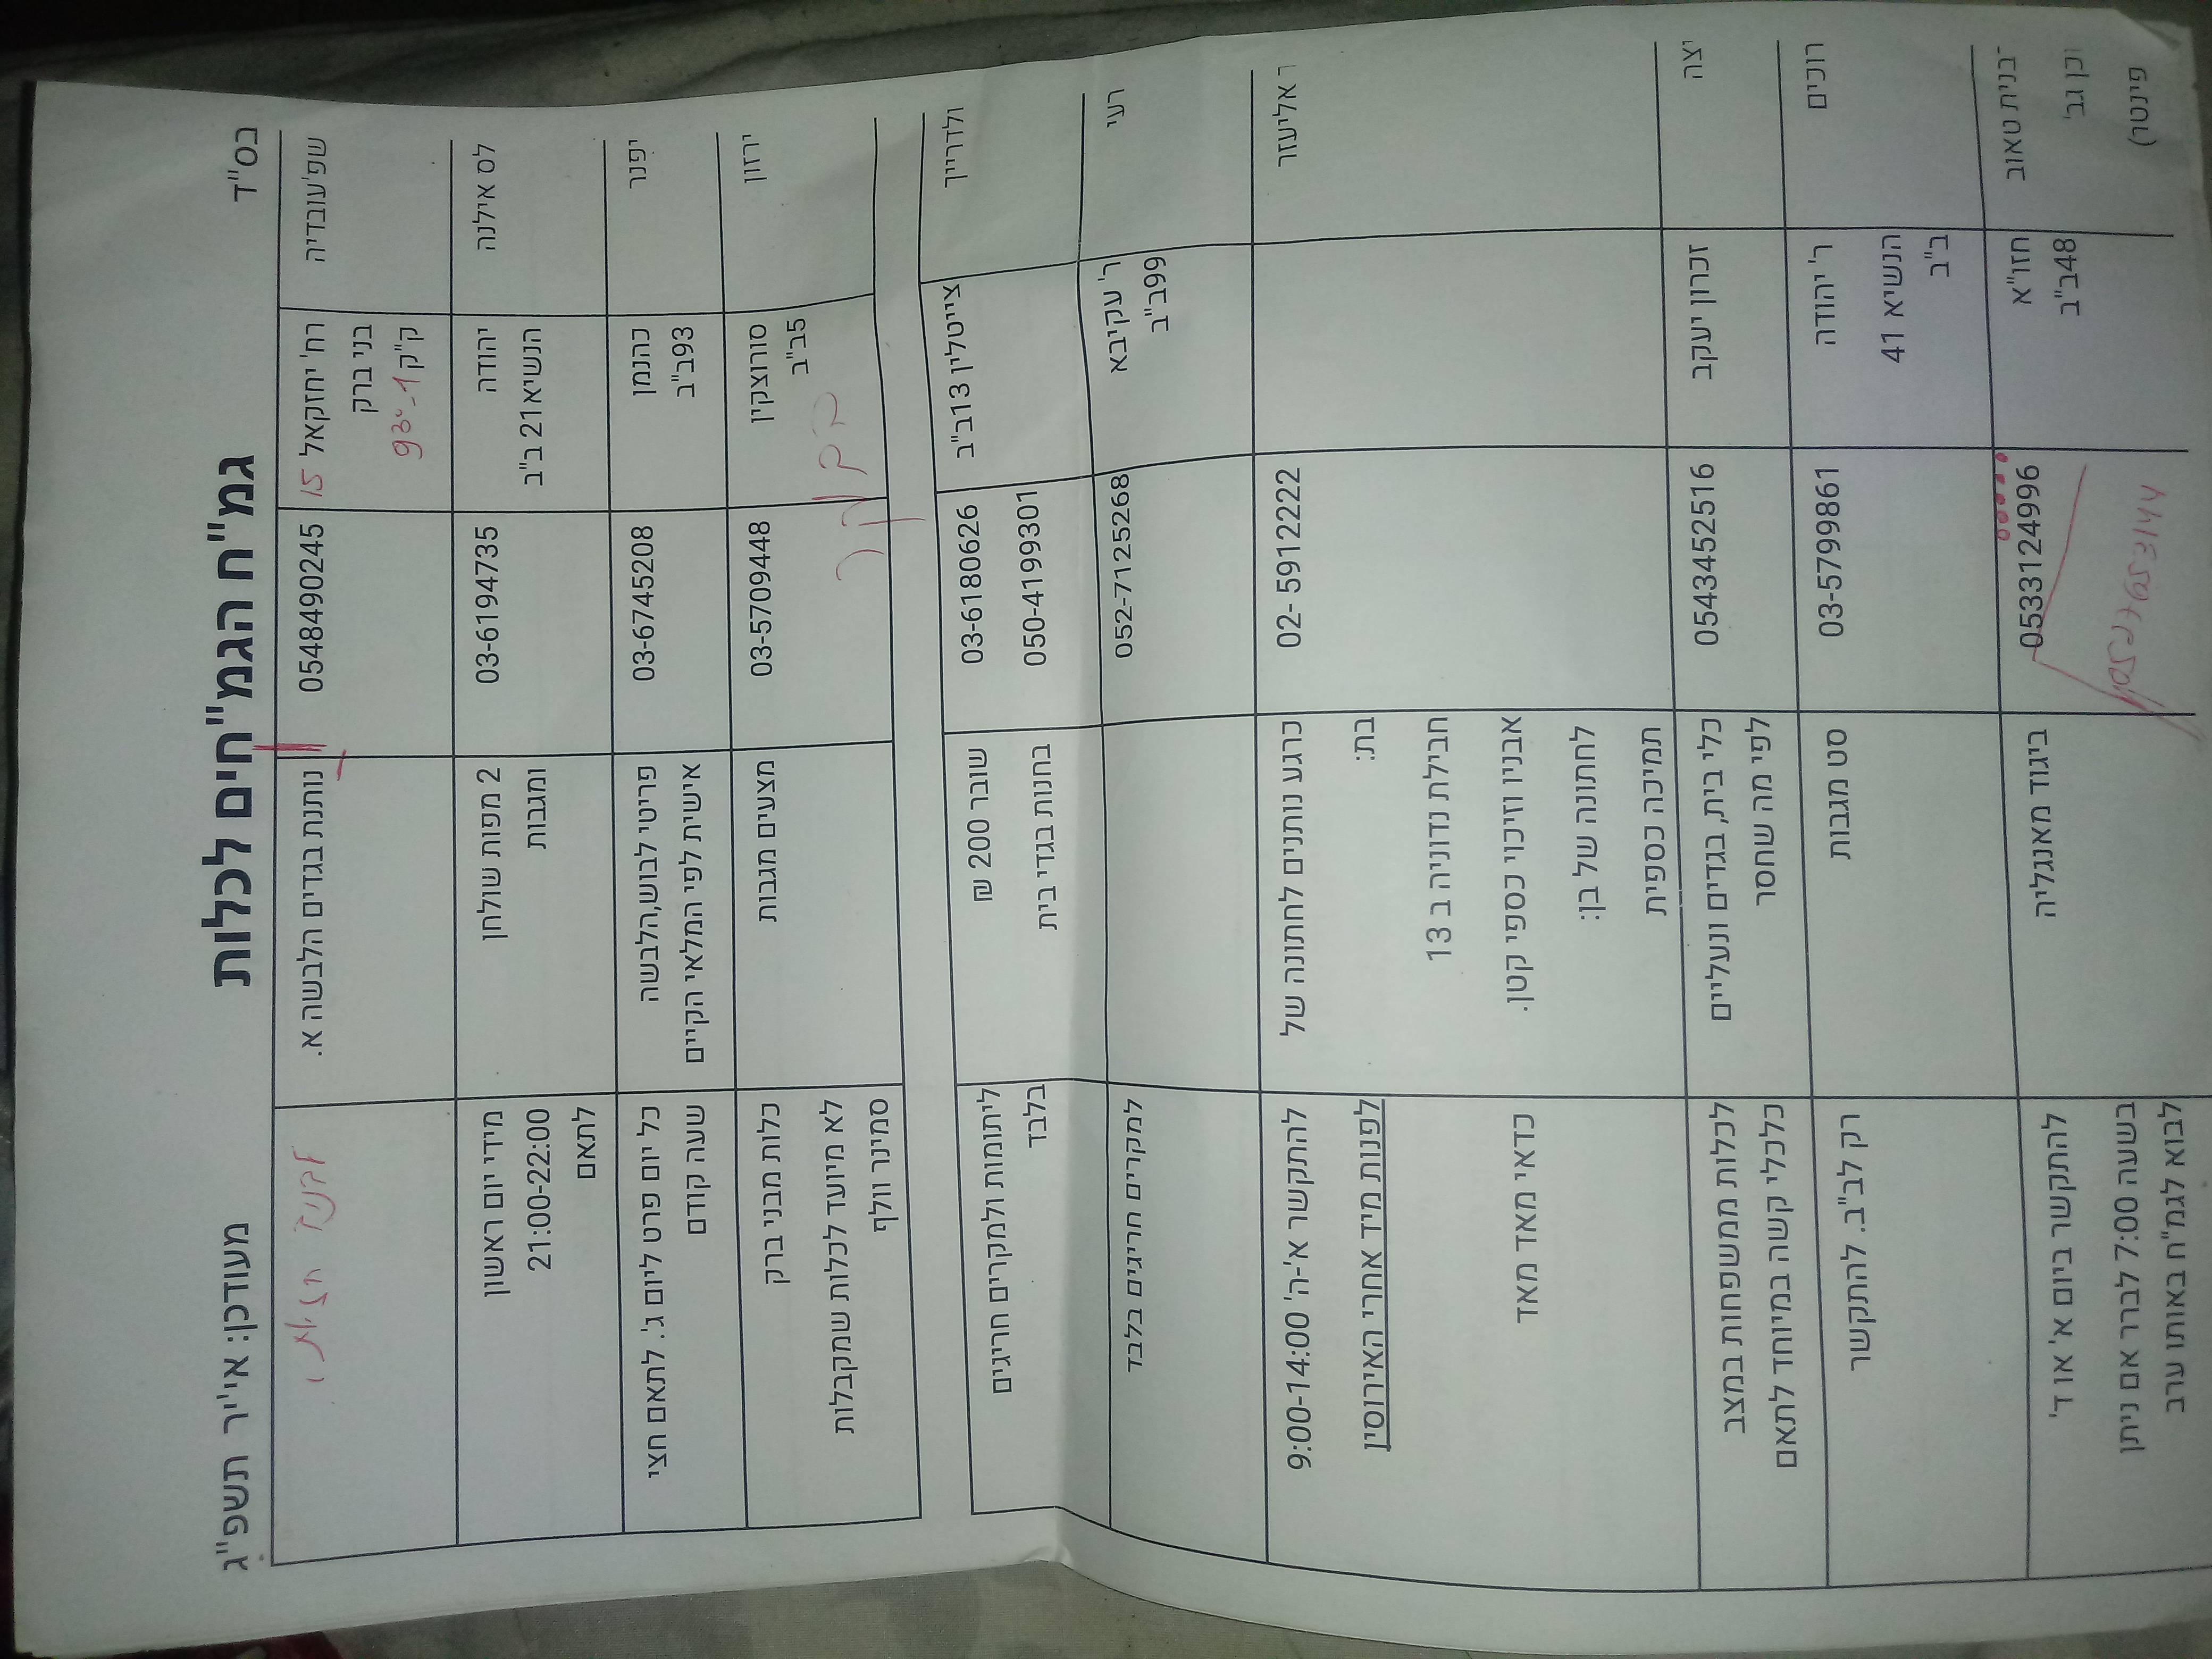 בס"ד
גמ"ח הגמ"חים לכלות
מעודכן: אי'יר תשפ"ג
שפ'עובדיה
רח' יחזקאל 15
בני ברק
ק"ק
0548490245
נותנת בגדים הלבשה א.
לס אילנה
יהודה
הנשיא21 ב"ב
03-6194735
2 מפות שולחן
ומגבות
מידי יום ראשון
21:00-22:00
לתאם
יפנר
כהנמן
93ב"ב
03-6745208
פריטי לבוש,הלבשה
אישית לפי המלאי הקיים
כל יום פרט ליום ג'. לתאם חצי
שעה קודם
ירזון
סורוצקין
5ב"ב
03-5709448
מצעים מגבות
כלות מבני ברק
לא מיועד לכלות שמקבלות
סמינר וולף
ולדרייך
צייטלין 13ב"ב
03-6180626
050-4199301
שובר 200 ₪
בחנות בגדי בית
ליתומות ולמקרים חריגים
בלבד
רעי
ר' עקיבא
99ב"ב
052-7125268
למקרים חריגים בלבד
ו אליעזר
02- 5912222
כרגע נותנים לחתונה של
בת:
חבילת נדוניה ב 13
אבניו וזיכוי כספי קטן.
לחתונה של בן:
תמיכה כספית
להתקשר א'-ה' 9:00-14:00
לפנות מיד אחרי האירוסין
כדאי מאד מאד
יצה
זכרון יעקב
0543452516
כלי בית, בגדים ונעליים
לפי מה שחסר
לכלות ממשפחות במצב
כלכלי קשה במיוחד לתאם
רוכים
ר' יהודה
הנשיא 41
ב"ב
03-5799861
סט מגבות
רק לב"ב. להתקשר
בנית טאוב
וכן גב'
פינטר)
חזו"א
48ב"ב
0533124996
ביגוד מאנגליה
להתקשר ביום א' או ד'
בשעה 7:00 לברר אם ניתן
לבוא לגמ"ח באותו ערב